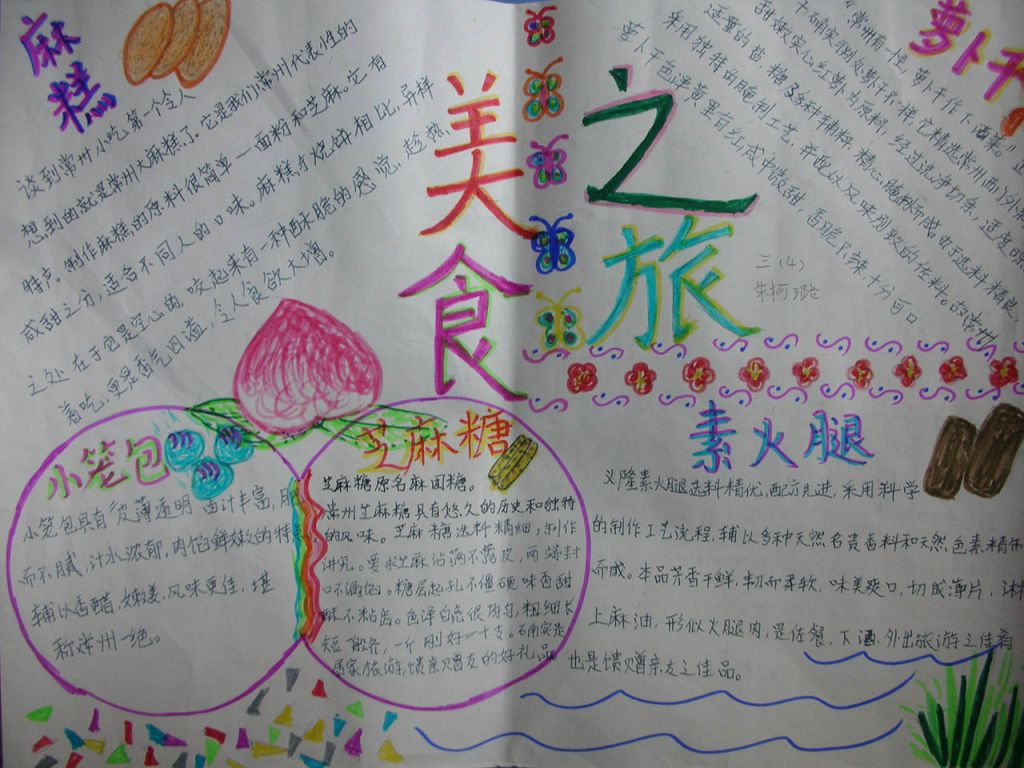 美食之旅
三(4)
朱柯璐
麻糕
谈到常州小吃,第一个令人
想到的就是常州大麻糕了。它是我们常州代表性的
特产。制作麻糕的原料很简单——面粉和芝麻。它有
咸甜之分,适合不同人的口味。麻糕与烧饼相比,异样
之处在于它是空心的,咬起来有一种酥脆的感觉,趁热
着吃,更是香气四溢,令人食欲大增。
萝卜干
“常州有一怪,萝卜干作下酒菜。”
干确实与别处萝卜干不一样,它精选常州西门外
甜嫩实心红萝卜为原料,经过洗净切条,适度晒
适量的盐、糖及多种辅料,精心腌制而成,由于选料精良、
采用独特的腌制工艺,并配以风味别致的佐料。故常州
萝卜干色泽黄里有红,咸中微甜,香脆、十分可口
小笼包
小笼包具有皮薄透明,卤汁丰富,肥
而不腻,汁水浓郁,肉馅鲜嫩的特点,
辅以香醋、嫩姜,风味更佳,堪
称常州一绝。
芝麻糖
芝麻糖原名麻团糖。
常州芝麻糖具有悠久的历史和独特
的风味。芝麻糖选料精细,制作
讲究。要求芝麻沾满不露皮,两端封
口不漏馅。糖层起孔不僵硬,味香甜
酥不粘齿。色泽白亮很均匀,粗细长
短整齐,一斤刚好一十支。确实是
居家旅游,馈亲赠友的好礼品。
素火腿
义隆素火腿选料精优,配方先进,采用科学
的制作工艺流程,辅以多种天然名贵香料和天然色素精作
而成。本品芳香干鲜,韧而柔软,味美爽口,切成薄片,沫
上麻油,形似火腿肉,是佐餐、下酒、外出旅游之佳肴
也是馈赠亲友之佳品。